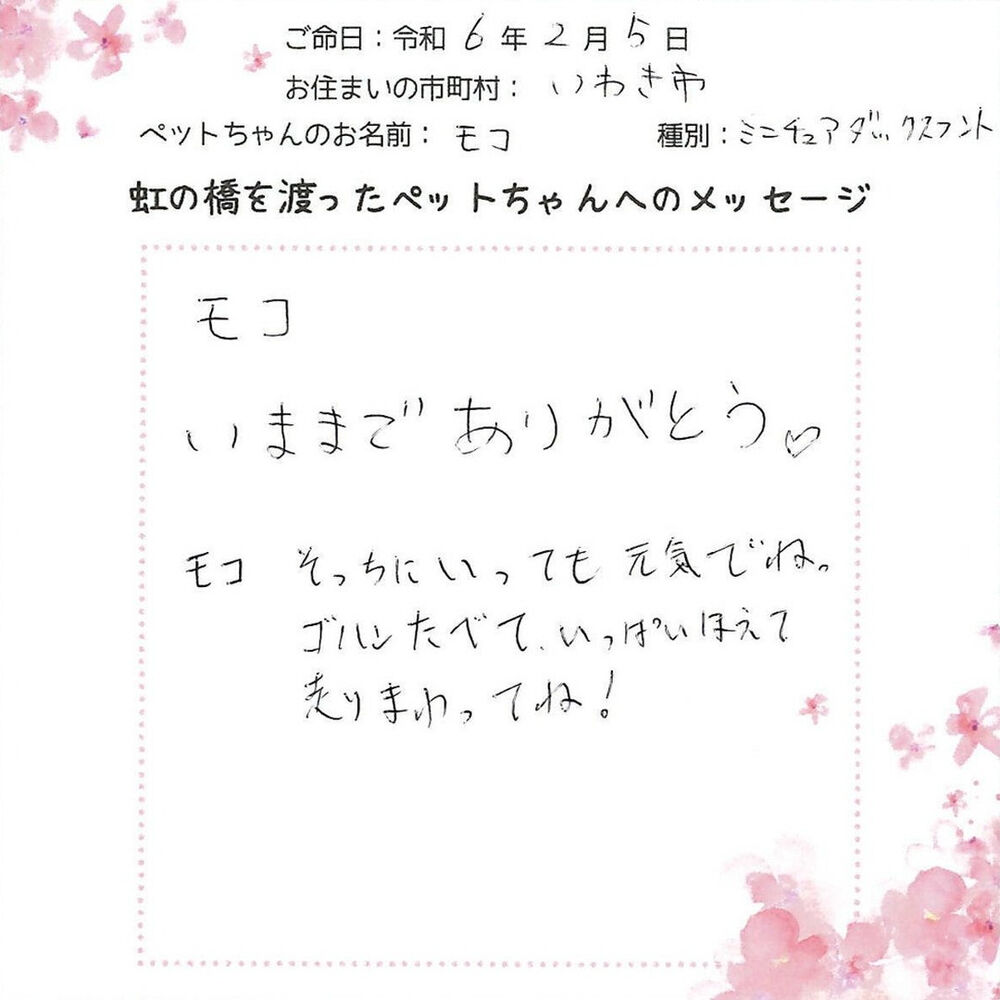 ご命日：令和 6 年 2 月 5 日
お住まいの市町村： いわき市
ペットちゃんのお名前： モコ 種別：ミニチュアダックスフント
虹の橋を渡ったペットちゃんへのメッセージ
モコ
いままで ありがとう♡
モコ そっちにいっても 元気でね。
ゴハンたべて、いっぱいほえて
走りまわってね！